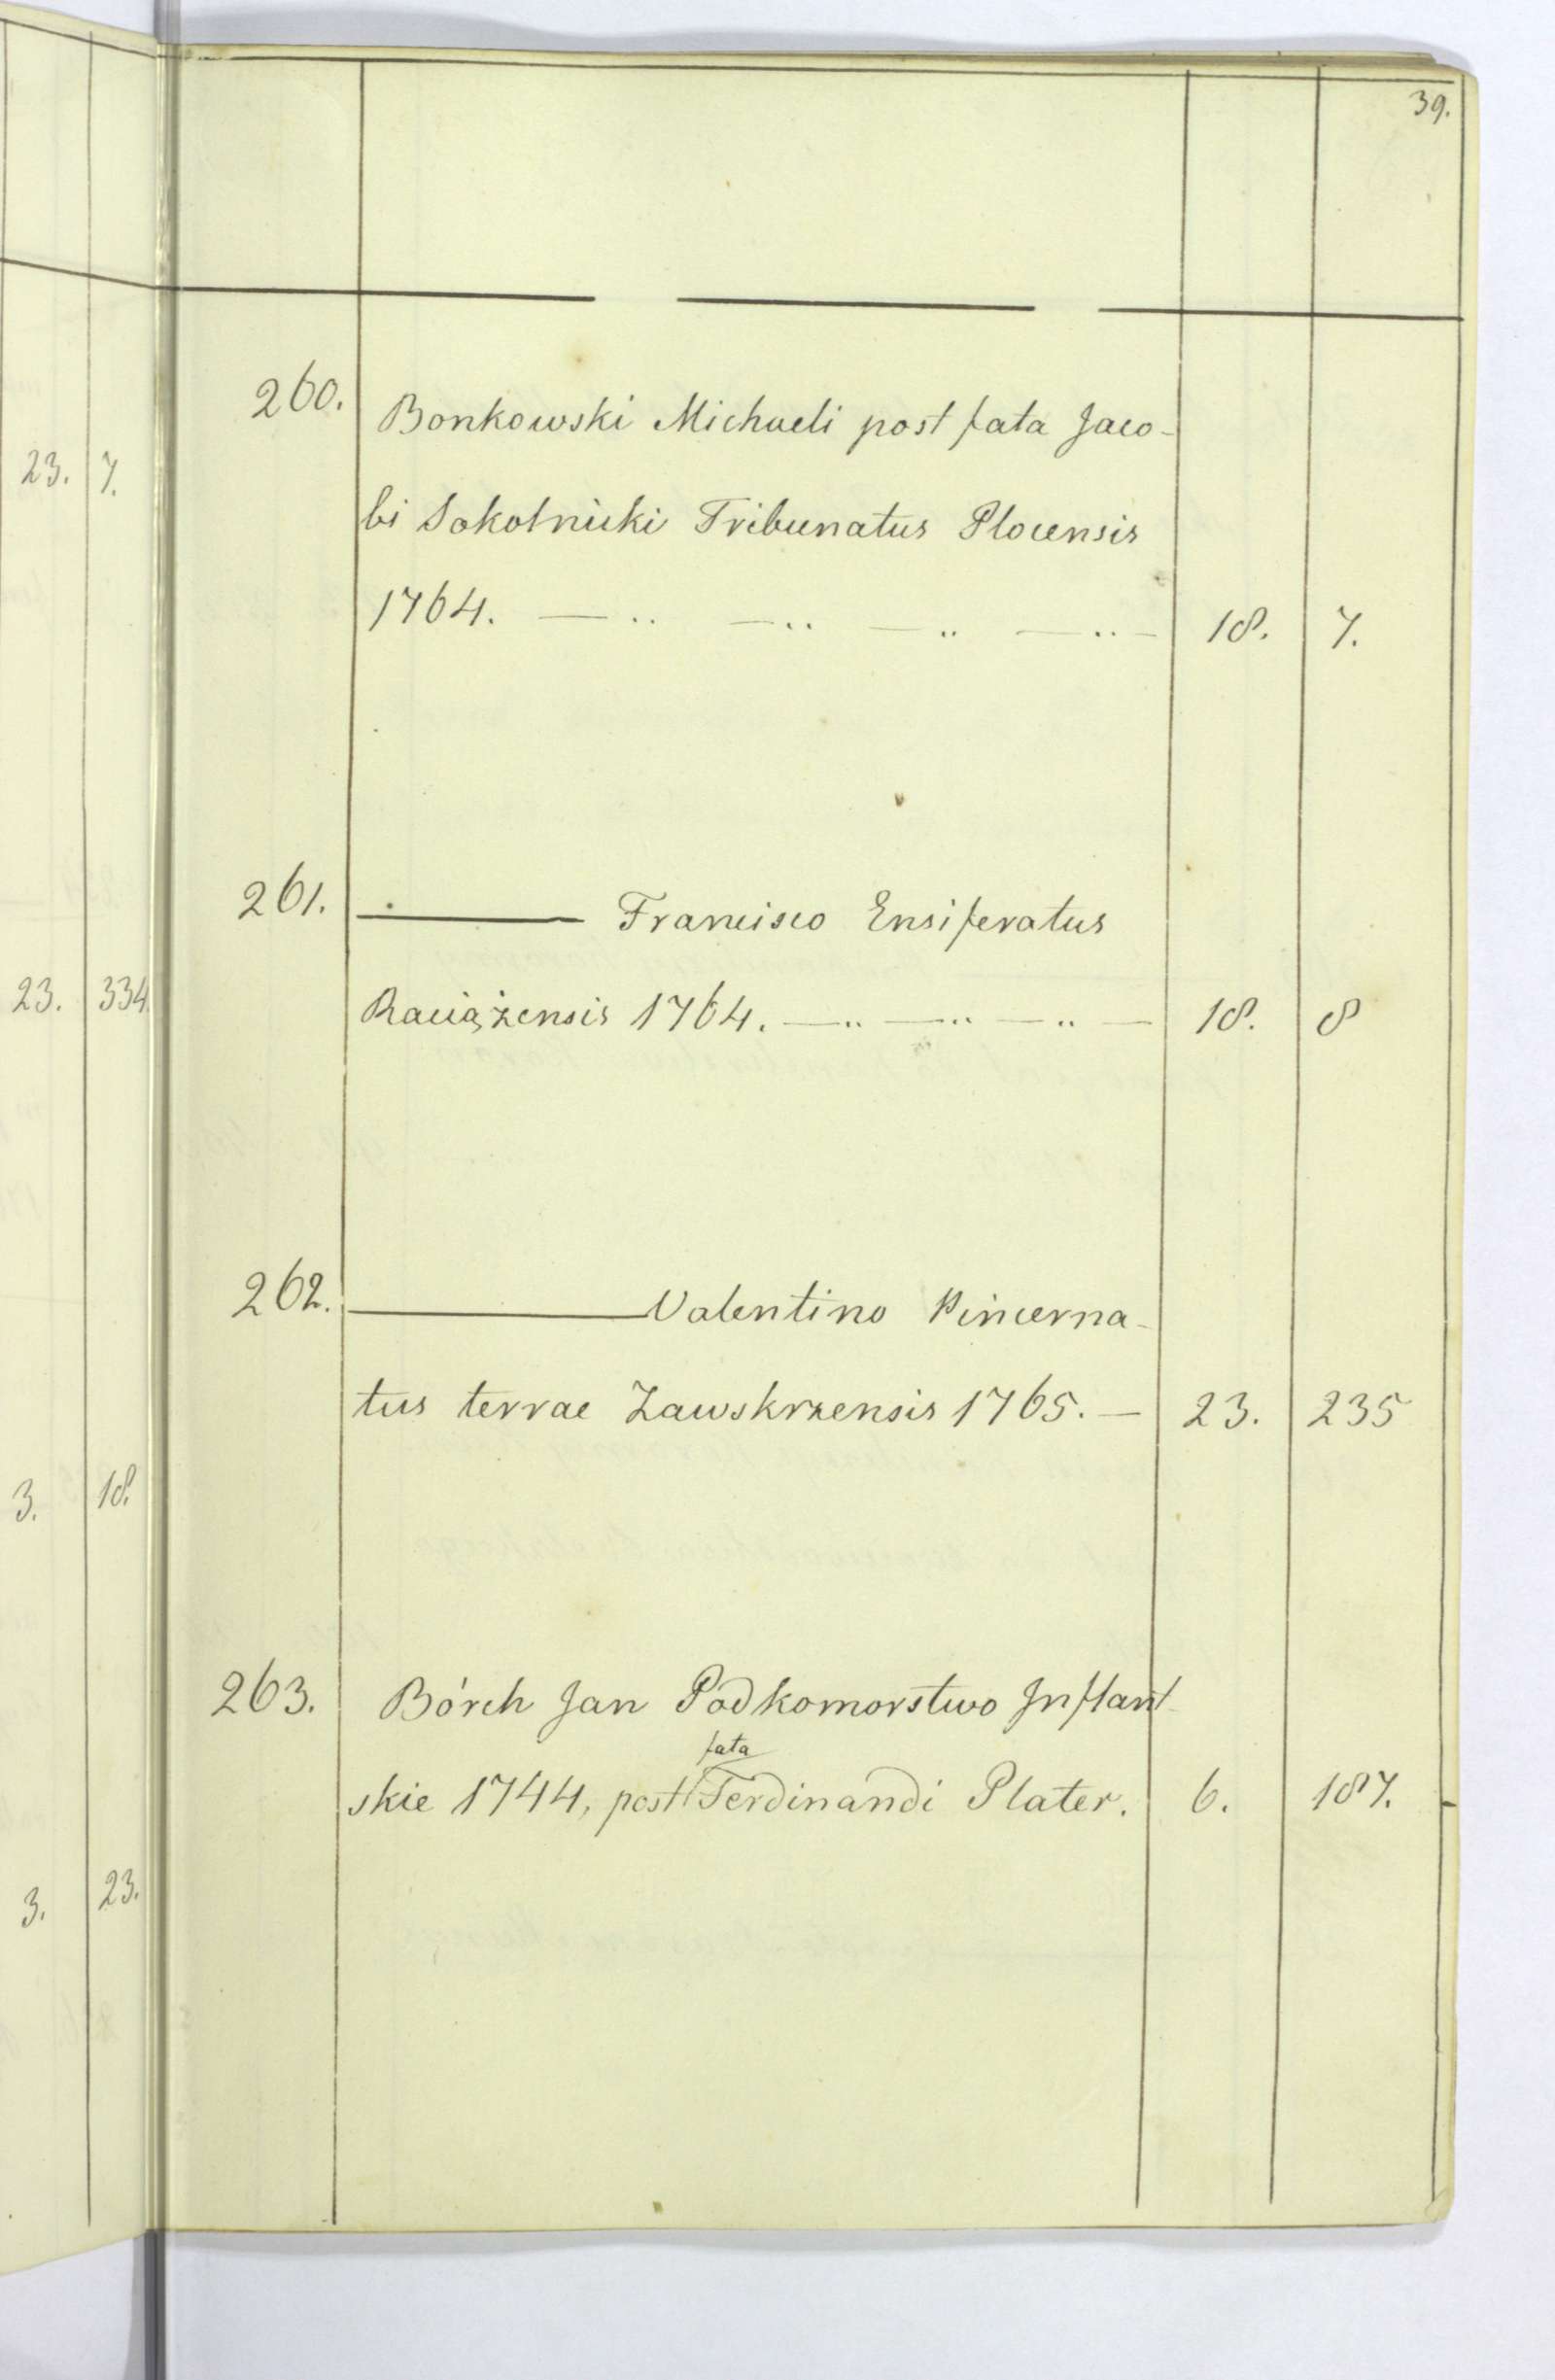 39.
23. 7.
23. 334.
3. 18.
3. 23.
260. Bonkowski Michaeli post fata Jaco-
bi Sokolnicki Tribunatus Plocensis
1764. — .. — .. — .. — .. — 18. 7.
261. ——— Francisco Ensiferatus
Raciążensis 1764. — .. — .. — .. — 18. 8
262. ——— Valentino Pincerna-
tus terrae Zawskrzensis 1765. — 23. 235
263. Bórch Jan Podkomorstwo Inflant-
fata
skie 1744, post Ferdinandi Plater. 6. 187.